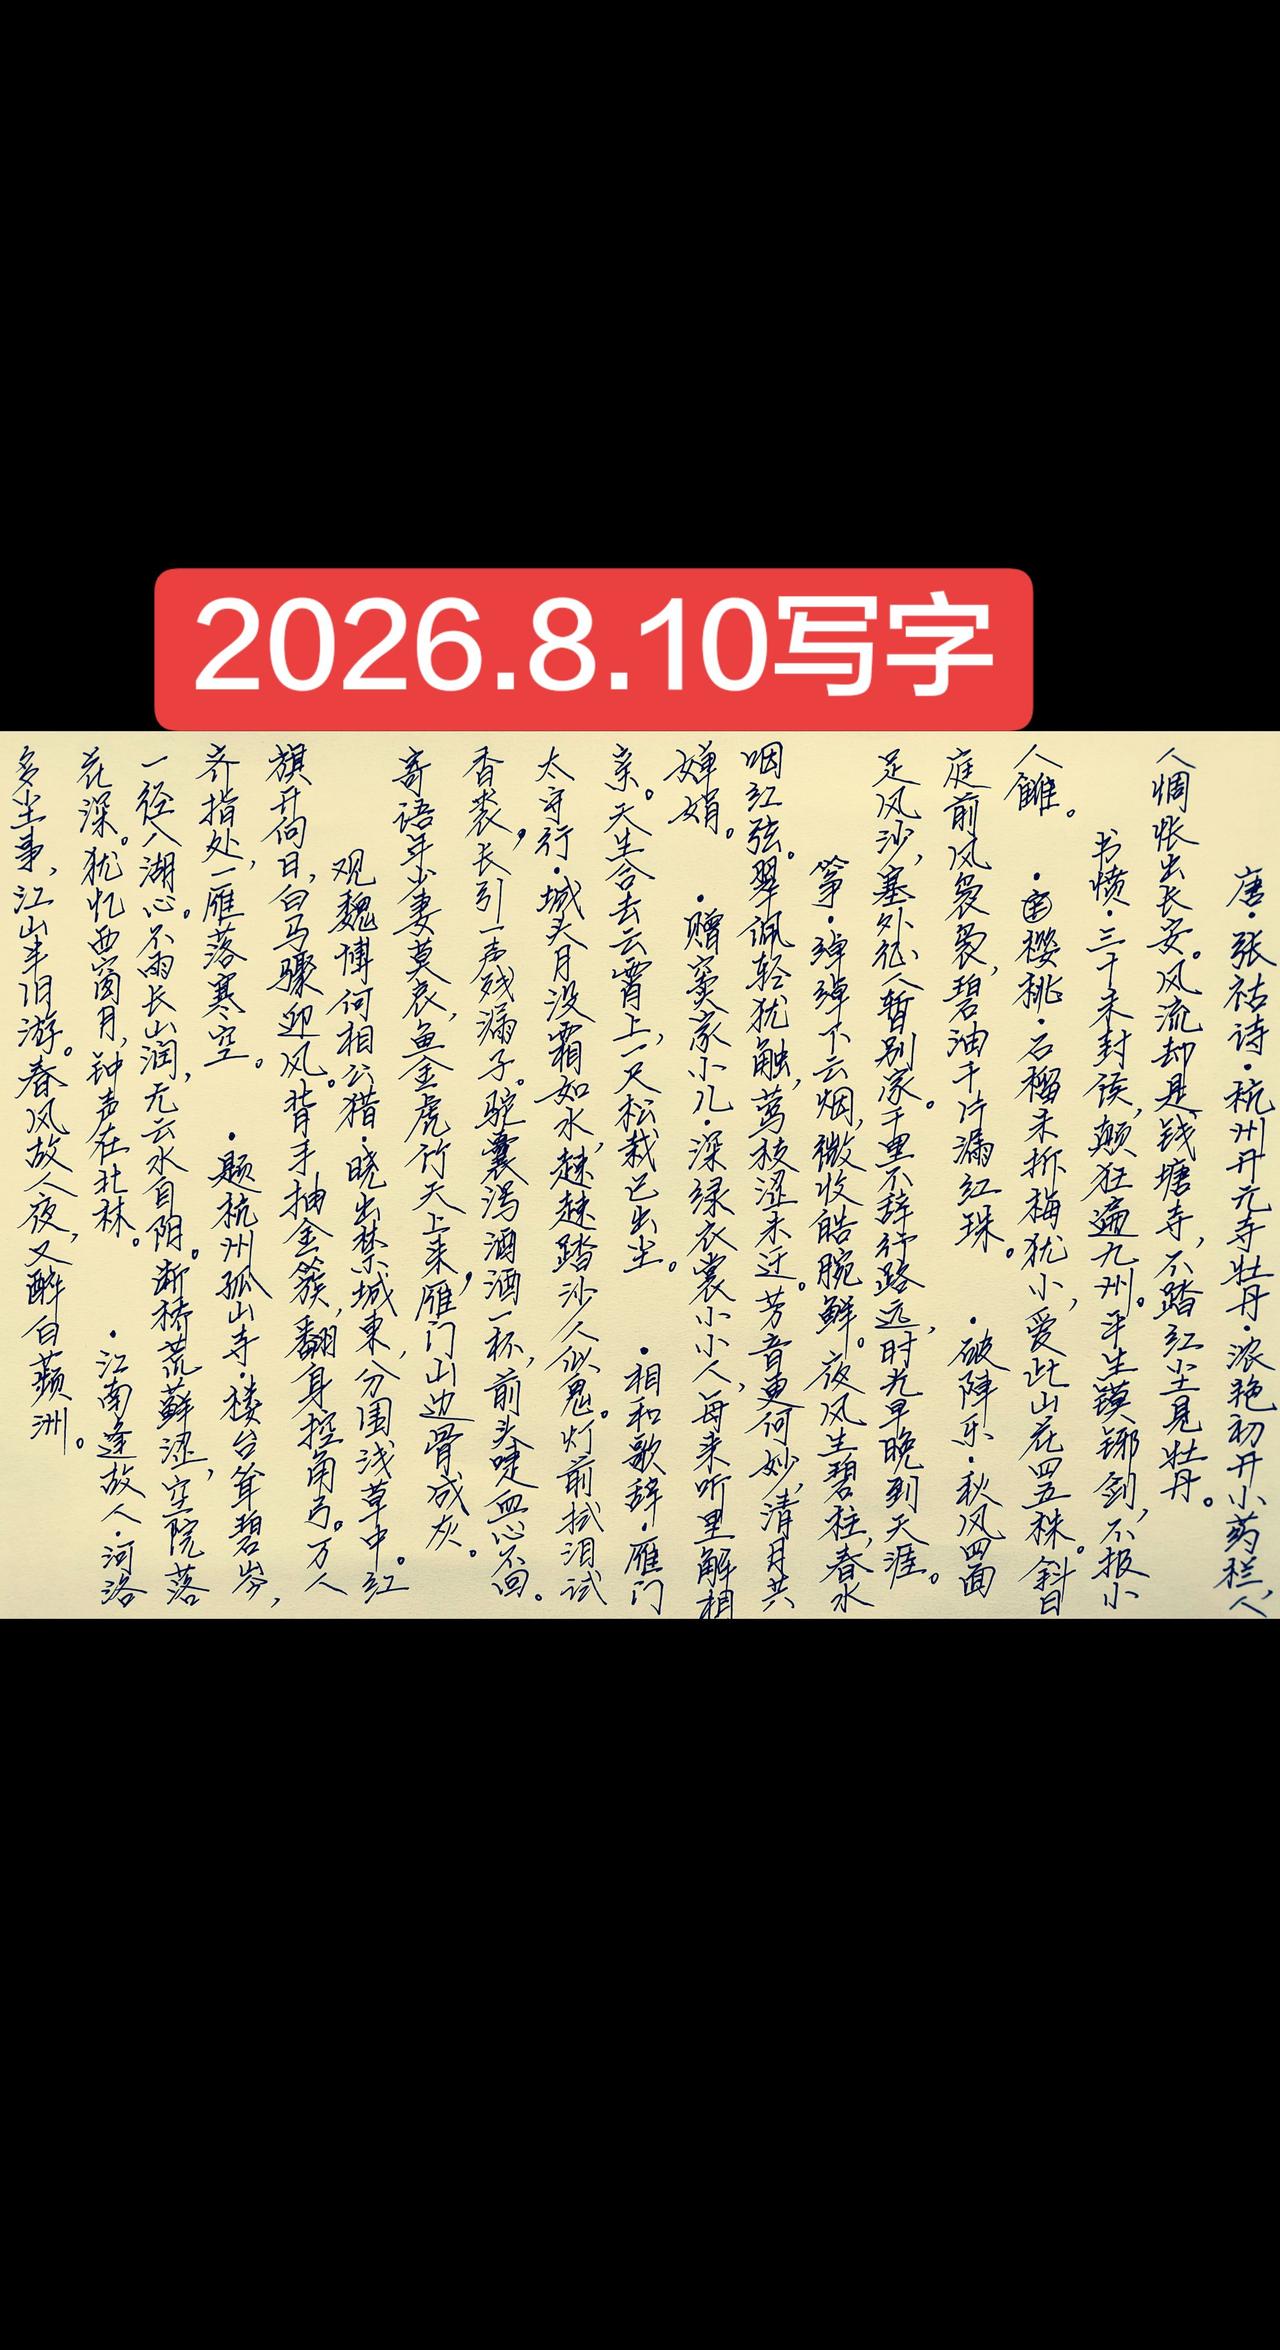 2026.8.10写字
唐·张祜诗·杭州开元寺牡丹·浓艳初开小药栏，人
人惆怅出长安。风流却是钱塘寺，不踏红尘见牡丹。
书愤·三十未封侯，颠狂遍九州。平生镆铘剑，不报小
人雠。
·樱桃·石榴未拆梅犹小，爱此山花四五株。斜日
庭前风袅袅，碧油千片漏红珠。
·破阵乐·秋风四面
足风沙，塞外征人暂别家。千里不辞行路远，时光早晚到天涯。
筝·绰绰下云烟，微收皓腕鲜。夜风生碧柱，春水
咽红弦。翠佩轻犹触，莺枝涩未迁。芳音更何妙，清月共
婵娟。
·赠窦家小儿·深绿衣裳小小人，每来听里解相
亲。天生合去云霄上，一尺松栽已出尘。
·相和歌辞·雁门
太守行·城头月没霜如水，趚趚踏沙人似鬼。灯前拭泪试
香裘，长引一声残漏子。驼囊泻酒酒一杯，前头啑血心不回。
寄语年少妻莫哀，鱼金虎竹天上来，雁门山边骨成灰。
观魏博何相公猎·晓出禁城東，分围浅草中。红
旗开向日，白马骤迎风。背手抽金簇，翻身控角弓。万人
齐指处，一雁落寒空。
·题杭州孤山寺·楼台耸碧岑，
一径入湖心。不雨长山润，无云水自阴。断桥荒藓涩，空院落
花深。犹忆西窗月，钟声在北林。
·江南逢故人·河洛
多尘事，江山半旧游。春风故人夜，又醉白蘋洲。